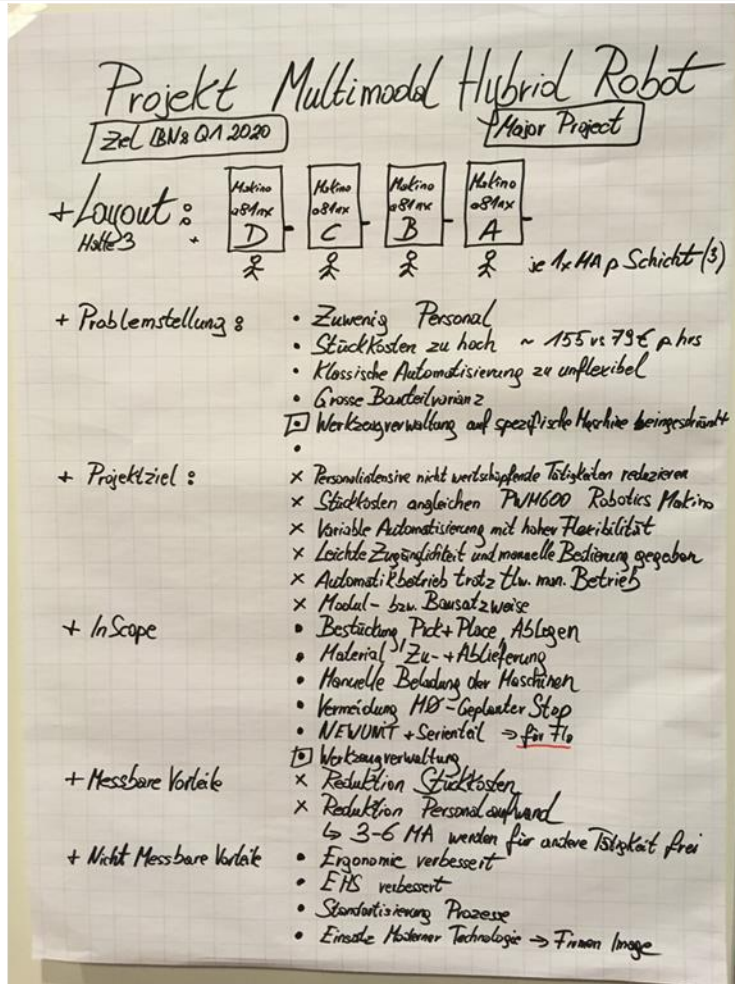 Projekt Multimodal Hybrid Robot
Ziel IBN: Q1 2020
Major Project
+ Layout:
Halle 3
Makino a81nx D
Makino a81nx C
Makino a81nx B
Makino a81nx A
je 1x MA p Schicht (3)
+ Problemstellung:
• Zuwenig Personal
• Stückkosten zu hoch ~ 155 vs 79€ p hrs
• Klassische Automatisierung zu unflexibel
• Grosse Bauteilvarianz
Werkzeugverwaltung auf spezifische Maschine beingeschränkt
+ Projektziel:
x Personalintensive nicht wertschöpfende Tätigkeiten reduzieren
x Stückkosten angleichen PWH600 Robotics Makino
x Variable Automatisierung mit hoher Flexibilität
x Leichte Zugänglichkeit und manuelle Bedienung gegeben
x Automatikbetrieb trotz tlw. man. Betrieb
x Modul- bzw. Bausatzweise
+ InScope
• Bestückung, Pick+Place, Ablegen
• Material Zu- + Ablieferung
• Manuelle Beladung der Maschinen
• Vermeidung MØ-Geplanter Stop
• NEWUNIT + Serienteil → für Flo
Werkzeugverwaltung
+ Messbare Vorteile
x Reduktion Stückkosten
x Reduktion Personalaufwand
↳ 3-6 MA werden für andere Tätigkeit frei
+ Nicht Messbare Vorteile
• Ergonomie verbessert
• EHS verbessert
• Standartisierung Prozesse
• Einsatz Moderner Technologie → Firmen Image